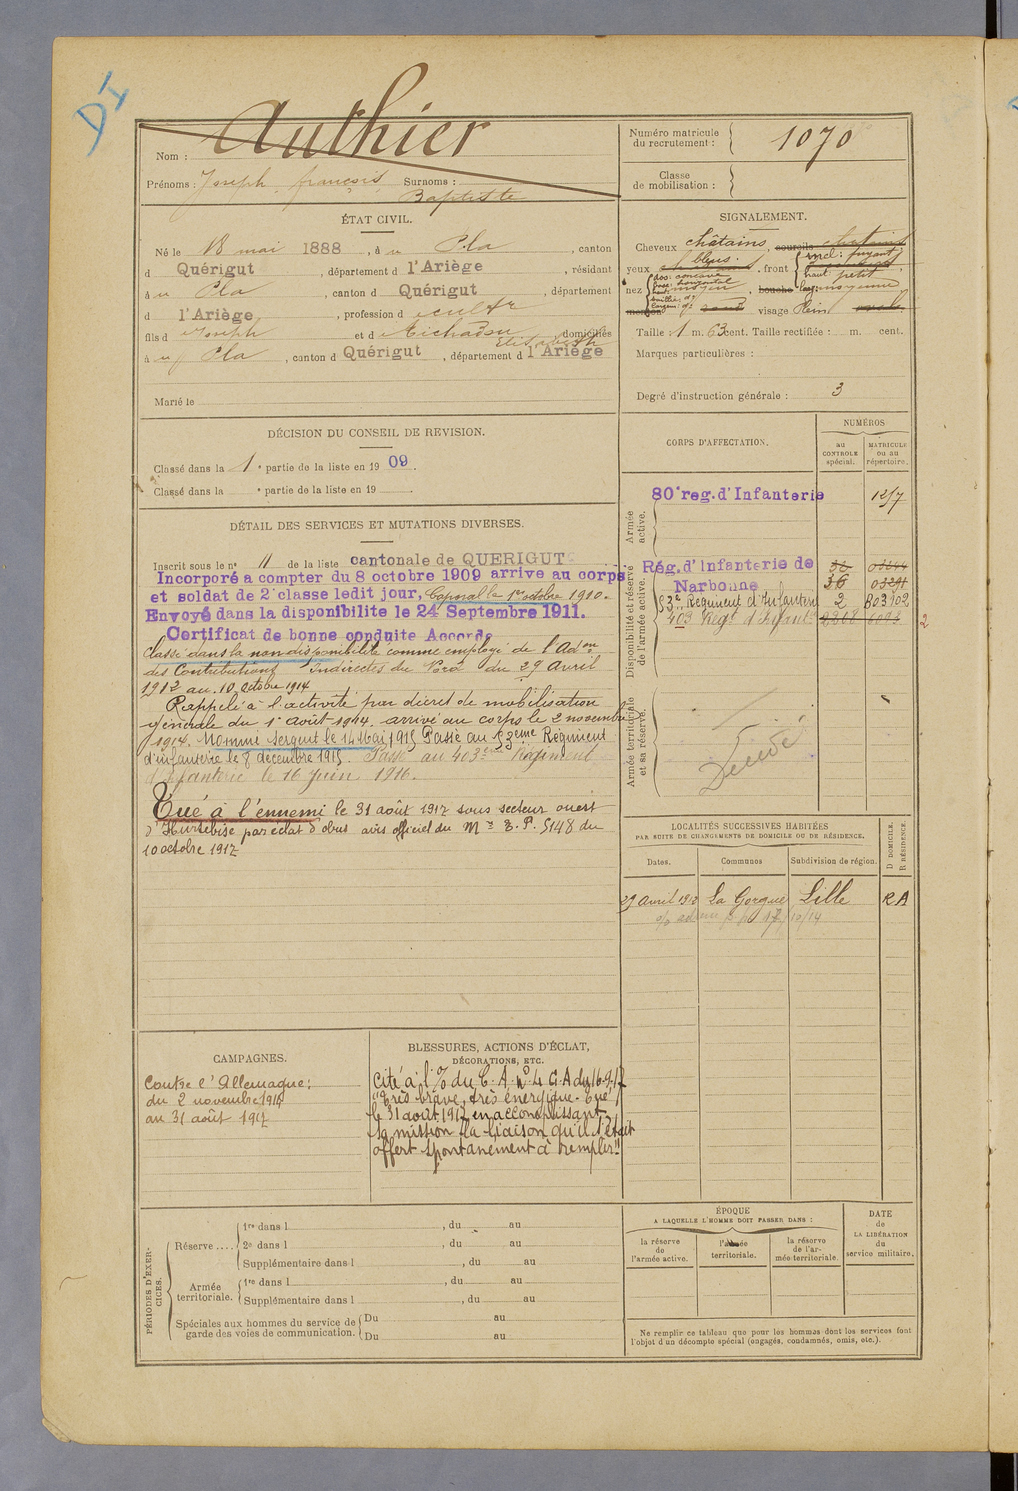 DI
Nom : Authier
Prénoms : Joseph françois Surnoms :
Baptiste
Numéro matricule
du recrutement : 1070
Classe
de mobilisation :
ÉTAT CIVIL.
Né le 18 mai 1888, à u Pla, canton
d Quérigut, département d l'Ariège, résidant
à u Pla, canton d Quérigut, département
d l'Ariège, profession d cultr
fils d Joseph et d domiciliés
Elisabeth
à u Pla, canton d Quérigut, département d l'Ariège
Marié le
SIGNALEMENT.
Cheveux châtains, sourcils châtains
yeux bleus. front incl: fuyant
haut: petit
nez dos: concave
base: horizontal
haut: moyen bouche larg: moyenne
menton rond visage Plein ovale
Taille : 1 m. 63 cent. Taille rectifiée : m. cent.
Marques particulières :
Degré d'instruction générale : 3
DÉCISION DU CONSEIL DE REVISION.
Classé dans la 1e partie de la liste en 1909.
Classé dans la e partie de la liste en 19 .
CORPS D'AFFECTATION.
NUMÉROS
au
CONTROLE
spécial.
MATRICULE
ou au
répertoire.
Armée
active.
80e reg. d'Infanterie
Disponibilité et réserve
de l'armée active.
Rég. d'Infanterie de 36
Narbonne 36
53e Régiment d'Infanterie 2
403 Regt d'Infanie
2
Armée territoriale
et sa réserve.
Décédé
DÉTAIL DES SERVICES ET MUTATIONS DIVERSES.
Inscrit sous le n° 11 de la liste cantonale de QUERIGUT
Incorporé a compter du 8 octobre 1909 arrive au corps
et soldat de 2e classe ledit jour, Caporal le 1er octobre 1910.
Envoyé dans la disponibilite le 24 Septembre 1911.
Certificat de bonne conduite Accorde
Classé dans la non disponibilité comme employé de l'Adon
des Contributions Indirectes du Nord du 29 Avril
1912 au 10 octobre 1914
Rappelé à l'activité par décret de mobilisation
générale du 1er août 1914. arrivé au corps le 2 novembre
1914. Nommé Sergent le 14 Mai 1915 Passé au 53eme Régiment
d'infanterie le 8 décembre 1915. Passé au 403e Régiment
d'Infanterie le 16 Juin 1916.
Tué à l'ennemi le 31 août 1917 sous secteur ouest
d'Hurtebise par éclat d'obus avis officiel du Mre B.P. 5148 du
10 octobre 1917
LOCALITÉS SUCCESSIVES HABITÉES
PAR SUITE DE CHANGEMENTS DE DOMICILE OU DE RÉSIDENCE.
Dates.
Communes
Subdivision de région.
D DOMICILE.
R RÉSIDENCE.
29 avril 1912 La Gorgue Lille RA
CAMPAGNES.
Contre l'Allemagne:
du 2 novembre 1914
au 31 août 1917
BLESSURES, ACTIONS D'ÉCLAT,
DÉCORATIONS, ETC.
Cité à l'% du C.A. N° 4 G.A du 16.9.17
"Très brave, très énergique. Tué
le 31 août 1917 en accomplissant
sa mission de liaison qu'il s'était
offert spontanément à remplir"
PÉRIODES D'EXER-
CICES.
Réserve ....
1re dans l , du au
2e dans l , du au
Supplémentaire dans l , du au
Armée
territoriale.
1re dans l , du au
Supplémentaire dans l , du au
Spéciales aux hommes du service de
garde des voies de communication.
Du au
Du au
ÉPOQUE
A LAQUELLE L'HOMME DOIT PASSER DANS :
la réserve
de
l'armée active.
l'armée
territoriale.
la réserve
de l'ar-
mée territoriale.
DATE
de
LA LIBÉRATION
du
service militaire.
Ne remplir ce tableau que pour les hommes dont les services font
l'objet d'un décompte spécial (engagés, condamnés, omis, etc.).